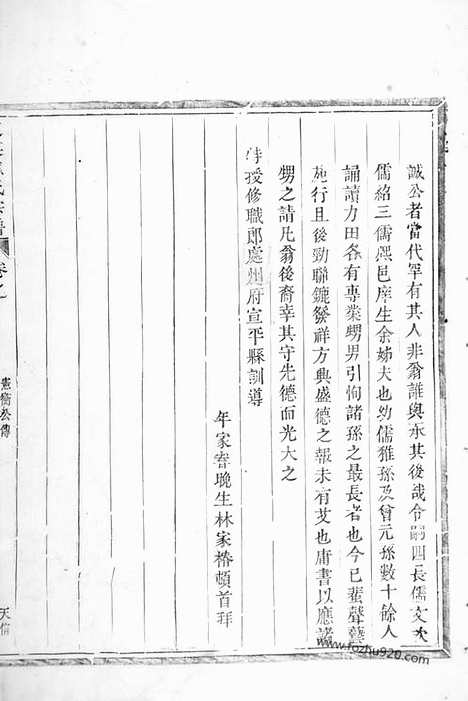 誠公者當代罕有其人非翁誰與永其後哉令嗣四長儒文次
儒紹三儒熙邑庠生余姊夫也幼儒雅孫及曾元孫數十餘人
誦讀力田各有專業甥男引恂諸孫之最長者也今已蜚聲黌
施行且後勁聯鑣發祥方興盛德之報未有艾也庸書以應諸
甥之請凡翁後裔幸其守先德而光大之
特授修職郎處州府宣平縣訓導
年家眷晚生林家椿頓首拜
氏宗譜
卷之
憲衡公傳
天倫
www.fozhu920.com